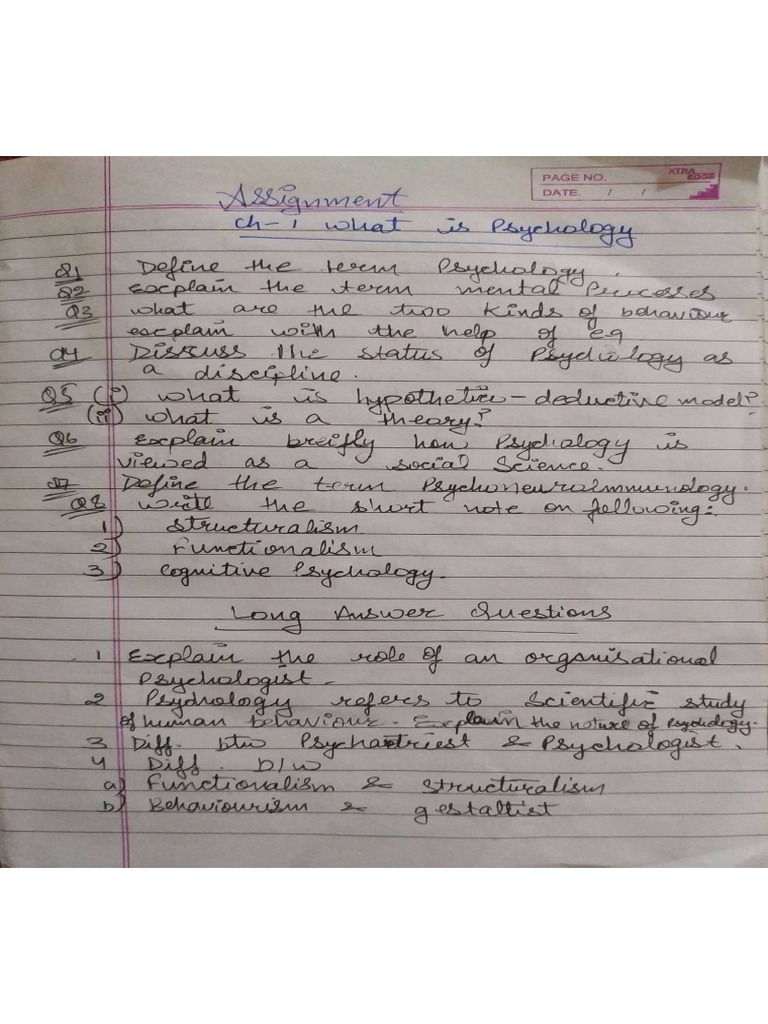 PAGE NO.
XTRA
EDGE
DATE. / /
Assignment
Ch-1 What is Psychology
Q1 Define the term Psychology.
Q2 Explain the term mental Processes
Q3 what are the two kinds of behaviour
explain with the help of eg
Q4 Discuss the status of Psychology as
a discipline.
Q5 (i) what is hypothetico-deductive model?
(ii) what is a theory?
Q6 Explain breifly how Psychology is
viewed as a social science.
Q7 Define the term Psychoneuroimmunology.
Q8 write the short note on following:-
1) Structuralism
2) Functionalism
3) Cognitive Psychology.
Long Answer Questions
1 Explain the role of an organisational
Psychologist-
2 Psychology refers to Scientific study
of human behaviour. Explain the nature of Psychology.
3 Diff. btw Psychaitriest & Psychologist.
4 Diff. b/w
a) Functionalism & structuralism
b) Behaviourism & gestaltist